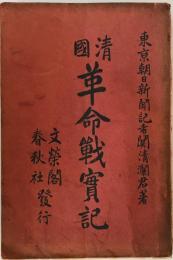 東京朝日新聞記者関清瀾君著
清國
革命戰實記
文榮閣
春秋社發行